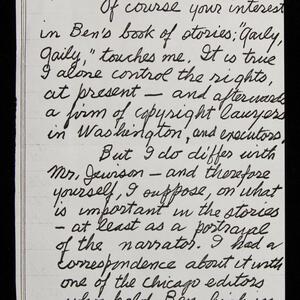 Of course your interest
in Ben's book of stories, "Gaily,
Gaily," touches me. It is true
I alone control the rights,
at present — and afterwards
a firm of copyright lawyers
in Washington, and executors.
But I do differ with
Mr. Jewison — and therefore
yourself, I suppose, on what
is important in the stories
— at least as a portrayal
of the narrator. I had a
correspondence about it with
one of the Chicago editors
who held Ben